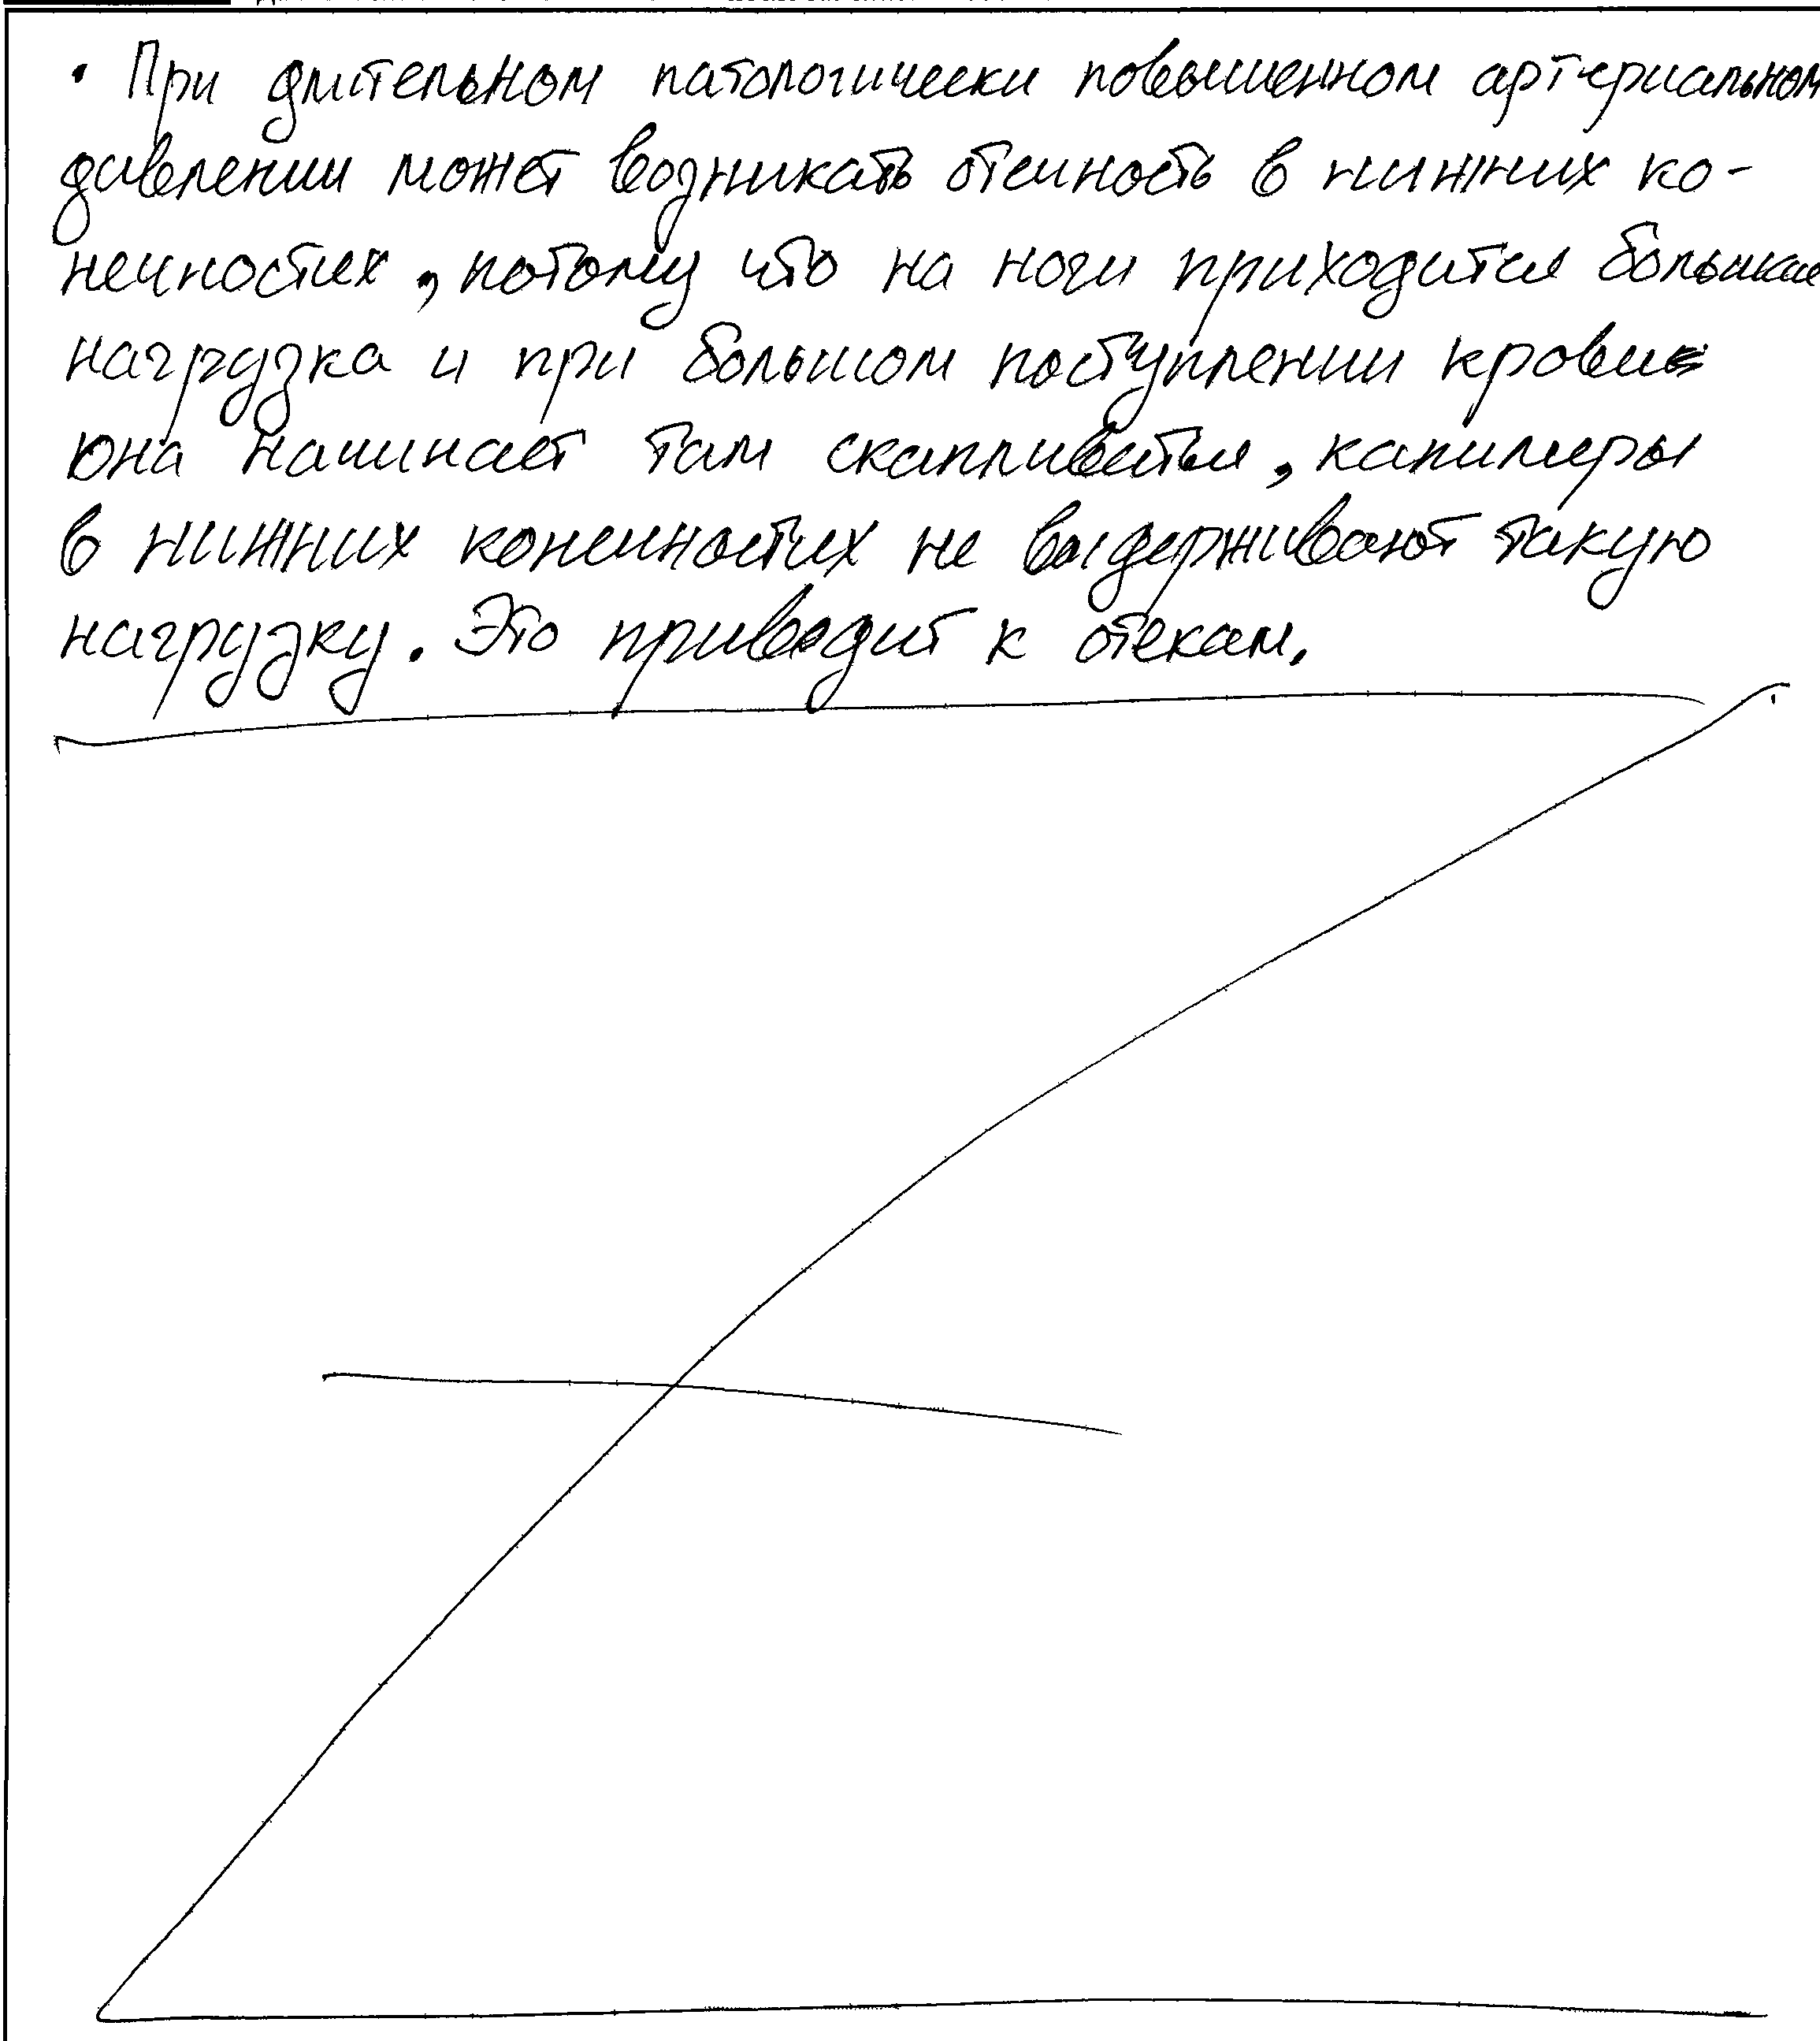 • При длительном патологически повышенном артериальном
давлении может возникать отечность в нижних ко-
нечностях, потому что на ноги приходится большая
нагрузка и при большом поступлении крови
она начинает там скапливаться, капиляры
в нижних конечностях не выдерживают такую
нагрузку. Это приводит к отекам.